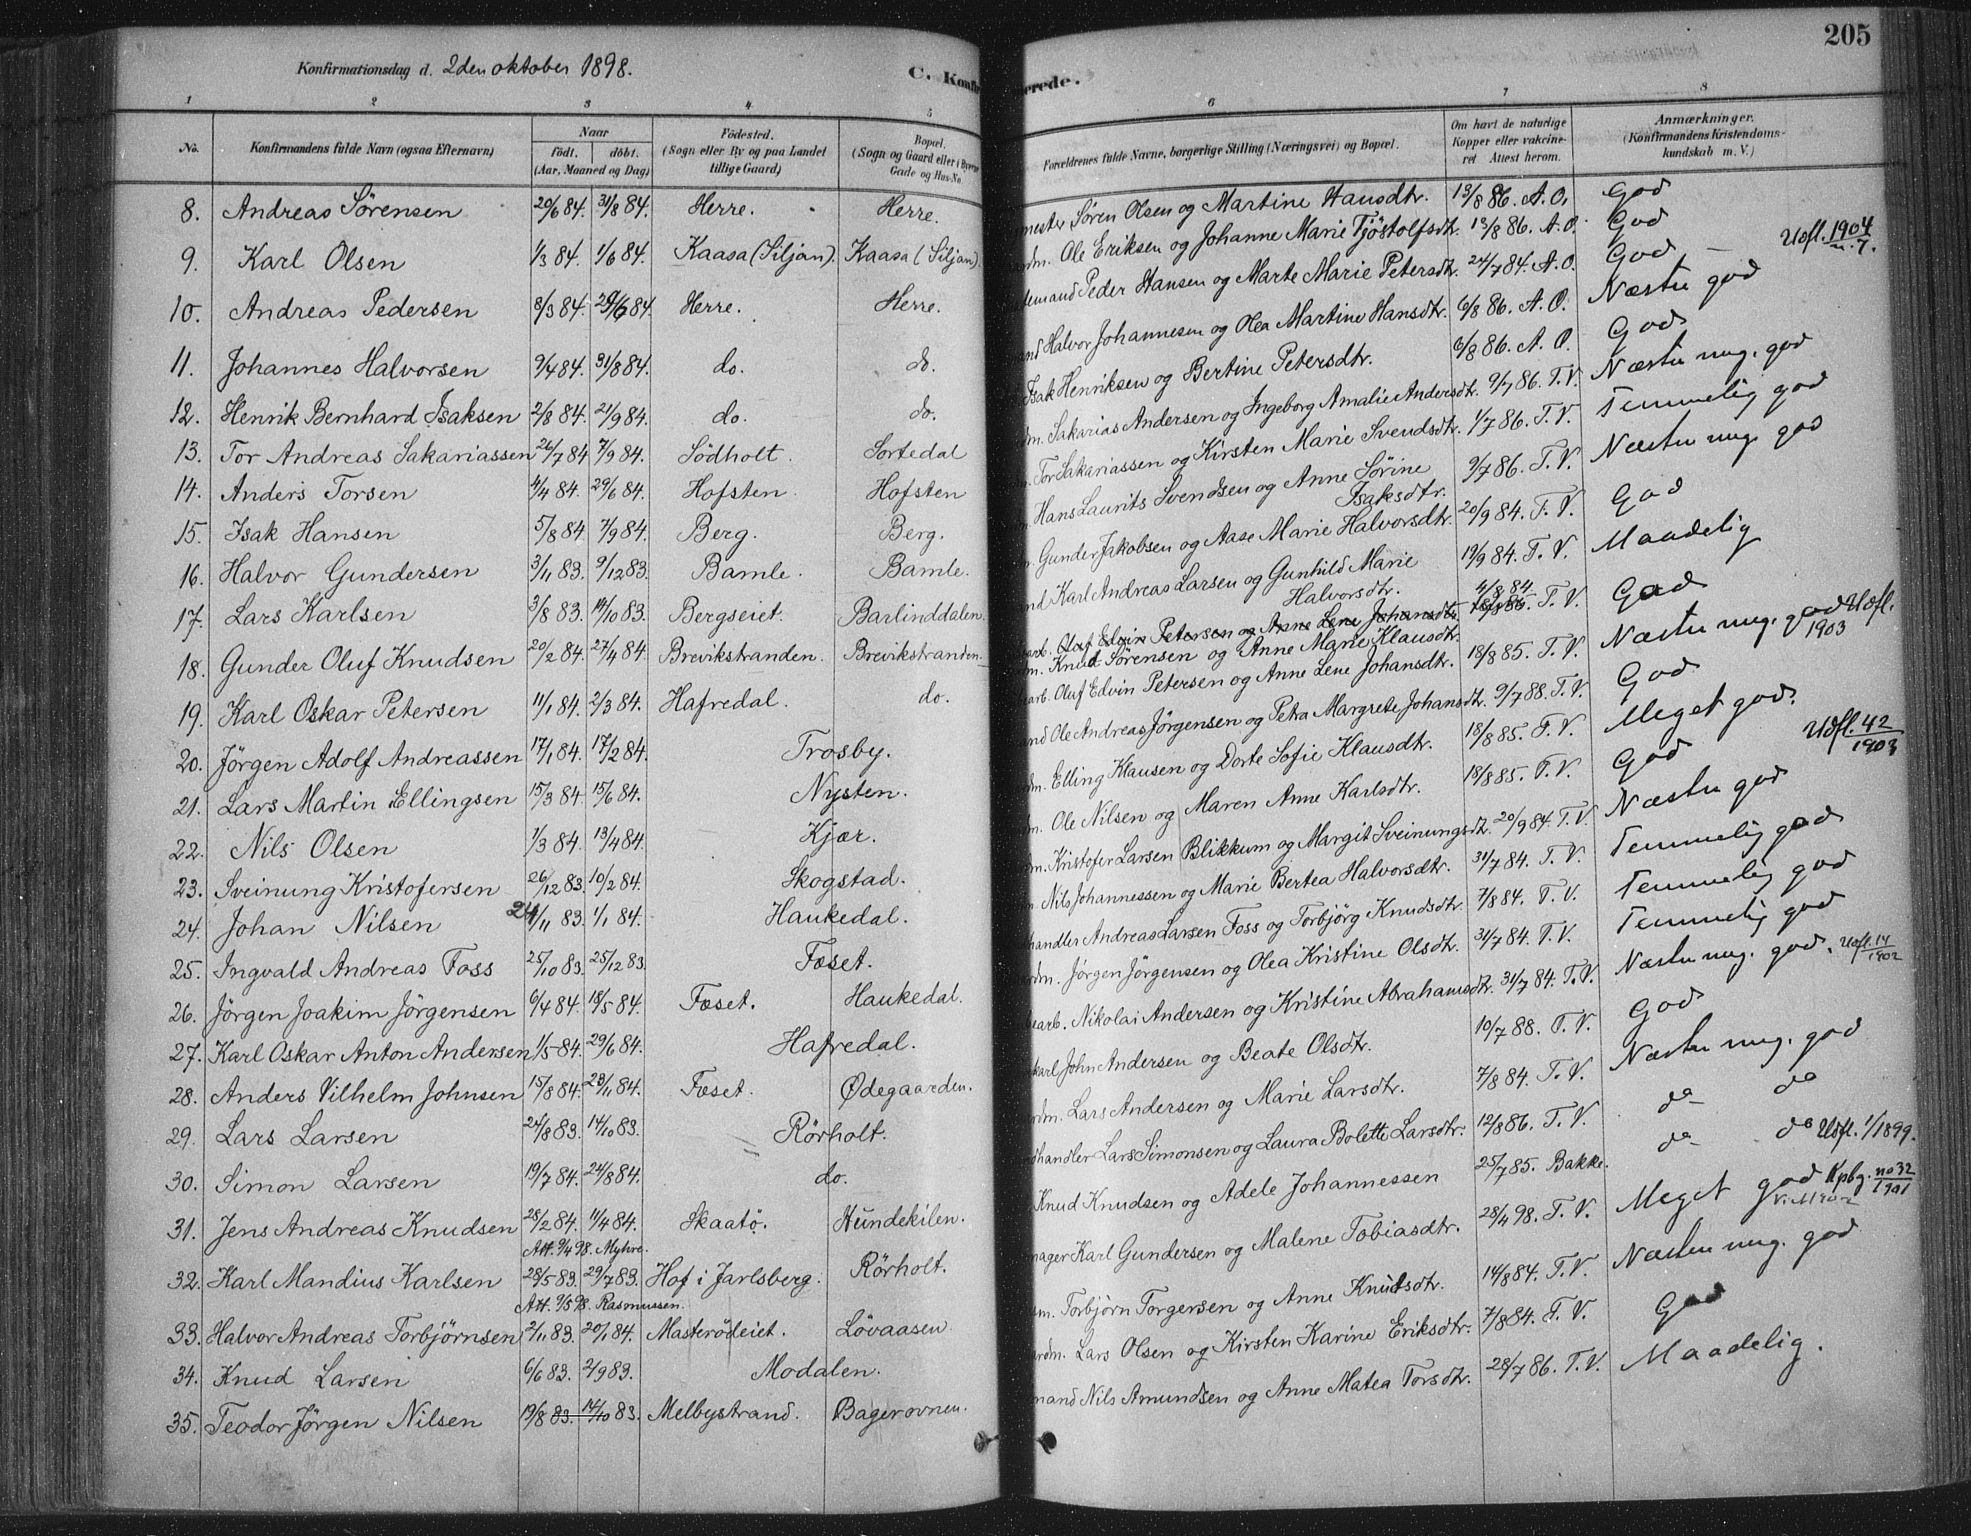 205
Konfirmationsdag d. 2den oktober 1898.
C. Konfir
erede.
1 2 3 4 5 6 7 8
No. Konfirmandens fulde Navn (ogsaa Efternavn) Naar födt. döbt. (Aar, Maaned og Dag) Födested. (Sogn eller By og paa Landet tillige Gaard) Bopæl. (Sogn og Gaard eller i Byerne Gade og Hus-No. Forældrenes fulde Navne, borgerlige Stilling (Næringsvei) og Bopæl. Om havt de naturlige Kopper eller vakcineret Attest herom. Anmærkninger. (Konfirmandens Kristendomskundskab m. V.)
8. Andreas Sörensen 20/6 84. 31/8 84. Herre. Herre. mester Sören Olsen og Martine Hansdtr. 13/8 86. A. O. God
9. Karl Olsen 1/3 84. 1/6 84. Kaasa (Siljan). Kaasa (Siljan). ardm. Ole Eriksen og Johanne Marie Tjöstolfsdtr. 13/8 86. A. O. God
10. Andreas Pedersen 8/3 84. 29/6 84. Herre. Herre. temand Peder Hansen og Marte Marie Petersdtr. 24/7 84. A. O. God – Udfl. 1904 n. 7.
11. Johannes Halvorsen 9/4 84. 31/8 84. do. do. and Halvor Johannesen og Olea Martine Hansdtr. 6/8 86. A. O. Næsten god
12. Henrik Bernhard Isaksen 2/8 84. 21/9 84. do. do. Isak Henriksen og Bertine Petersdtr. 6/8 86. A. O. God
13. Tor Andreas Sakariassen 26/7 84 7/9 84. Södholt. Sortedal dm. Sakarias Andersen og Ingeborg Amalie Andersdtr. 9/7 86. T. V. Næsten mg. god
14. Anders Torsen 4/4 84. 29/6 84. Hofsten. Hofsten Tor Sakariassen og Kirsten Marie Svendsdtr. 1/7 86. T. V. Temmelig god
15. Isak Hansen 5/8 84. 7/9 84. Berg. Berg. Hans Laurits Svendsen og Anne Sörine Isaksdtr. 9/7 86. T. V. Næsten mg. god
16. Halvor Gundersen 3/11 83. 9/12 83. Bamle. Bamle. Gunder Jakobsen og Aase Marie Halvorsdtr. 20/9 84. T. V. God
17. Lars Karlsen 3/8 83. 14/10 83. Bergseiet. Barlinddalen. nd Karl Andreas Larsen og Gunhild Marie Halvorsdtr. 19/9 84. T. V. Maadelig
arb. Oluf Edvin Petersen og Anne Lene Johansdtr. 18/8 86.
18. Gunder Oluf Knudsen 20/2 84. 27/4 84. Brevikstranden. Brevikstranden. m. Knud Sörensen og Anne Marie Klausdtr. 4/8 84 T. V. God
19. Karl Oskar Petersen 11/1 84. 2/3 84. Hafredal. do. arb. Oluf Edvin Petersen og Anne Lene Johansdtr. 18/8 85. T. V. Næsten mg. god Udfl. 1903
20. Jörgen Adolf Andreassen 17/1 84. 17/2 84. Trosby. and Ole Andreas Jörgensen og Petra Margrete Johansdtr. 9/7 88. T. V. God
21. Lars Martin Ellingsen 15/3 84. 15/6 84. Nysten. dm. Elling Klausen og Dorte Sofie Klausdtr. 18/8 85. T. V. Meget god.
22. Nils Olsen 1/3 84. 13/4 84. Kjær. dm. Ole Nilsen og Maren Anne Karlsdtr. 18/8 85. T. V. God Udfl. 42 1903
23. Sveinung Kristofersen 26/12 83. 10/2 84. Skogstad. dm. Kristofer Larsen Blikkum og Margit Sveinungsdtr. 20/9 84. T. V. Næsten god
24. Johan Nilsen 24/11 83. 1/1 84. Haukedal. Nils Johannessen og Marie Bertea Halvorsdtr. 31/7 84. T. V. Temmelig god
25. Ingvald Andreas Foss 25/10 83. 25/12 83. Fæset. handler Andreas Larsen Foss og Torbjörg Knudsdtr. 7/8 84. T. V. Temmelig god
26. Jörgen Joakim Jörgensen 6/4 84. 18/5 84. Fæset. Haukedal. rdm. Jörgen Jörgensen og Olea Kristine Olsdtr. 31/7 84. T. V. Temmelig god
27. Karl Oskar Anton Andersen 1/5 84. 29/6 84. Hafredal. earb. Nikolai Andersen og Kristine Abrahamsdtr. 31/7 84. T. V. Næsten mg. god. Udfl. 14 1902
28. Anders Vilhelm Johnsen 15/8 84. 23/11 84. Fæset. Ødegaarden. karl John Andersen og Beate Olsdtr. 10/7 88. T. V. God
29. Lars Larsen 24/8 83. 14/10 83. Rörholt. rdm. Lars Andersen og Marie Larsdtr. 7/8 84. T. V. Næsten mg. god
30. Simon Larsen 19/7 84. 24/8 84. do. dhandler Lars Simonsen og Laura Bolette Larsdtr. 12/8 86. T. V. do do
31. Jens Andreas Knudsen 28/2 84. 11/4 84. Skaatø. Hundekilen. Knud Knudsen og Adele Johannessen 25/7 85. Bakke. do do Udfl. 1/1899.
Att. 9/4 98. Myhre.
32. Karl Mandius Karlsen 28/5 83. 29/7 83. Hof i Jarlsberg. Rörholt. nager Karl Gundersen og Malene Tobiasdtr. 28/4 98. T. V. Meget god Kpbg. no 32 1901
Att. 9/5 98. Rasmussen.
33. Halvor Andreas Torbjörnsen 2/11 83. 20/1 84. Masterödeiet. Lövaasen. sm. Torbjörn Torgersen og Anne Knudsdtr. 14/8 84. T. V. Næsten mg. god
34. Knud Larsen 6/6 83. 2/9 83. Modalen. ardm. Lars Olsen og Kirsten Karine Eriksdtr. 7/8 84. T. V. God
35. Teodor Jörgen Nilsen 19/8 83. 14/10 83. Melbystrand. Bagerovnen. mand Nils Amundsen og Anne Matea Torsdtr. 28/7 86. T. V. Maadelig.